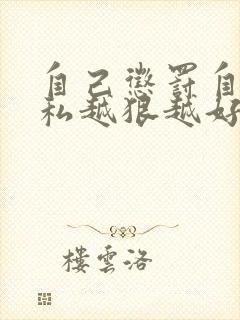 自己懲罰自
私越狠越好
樓雲洛